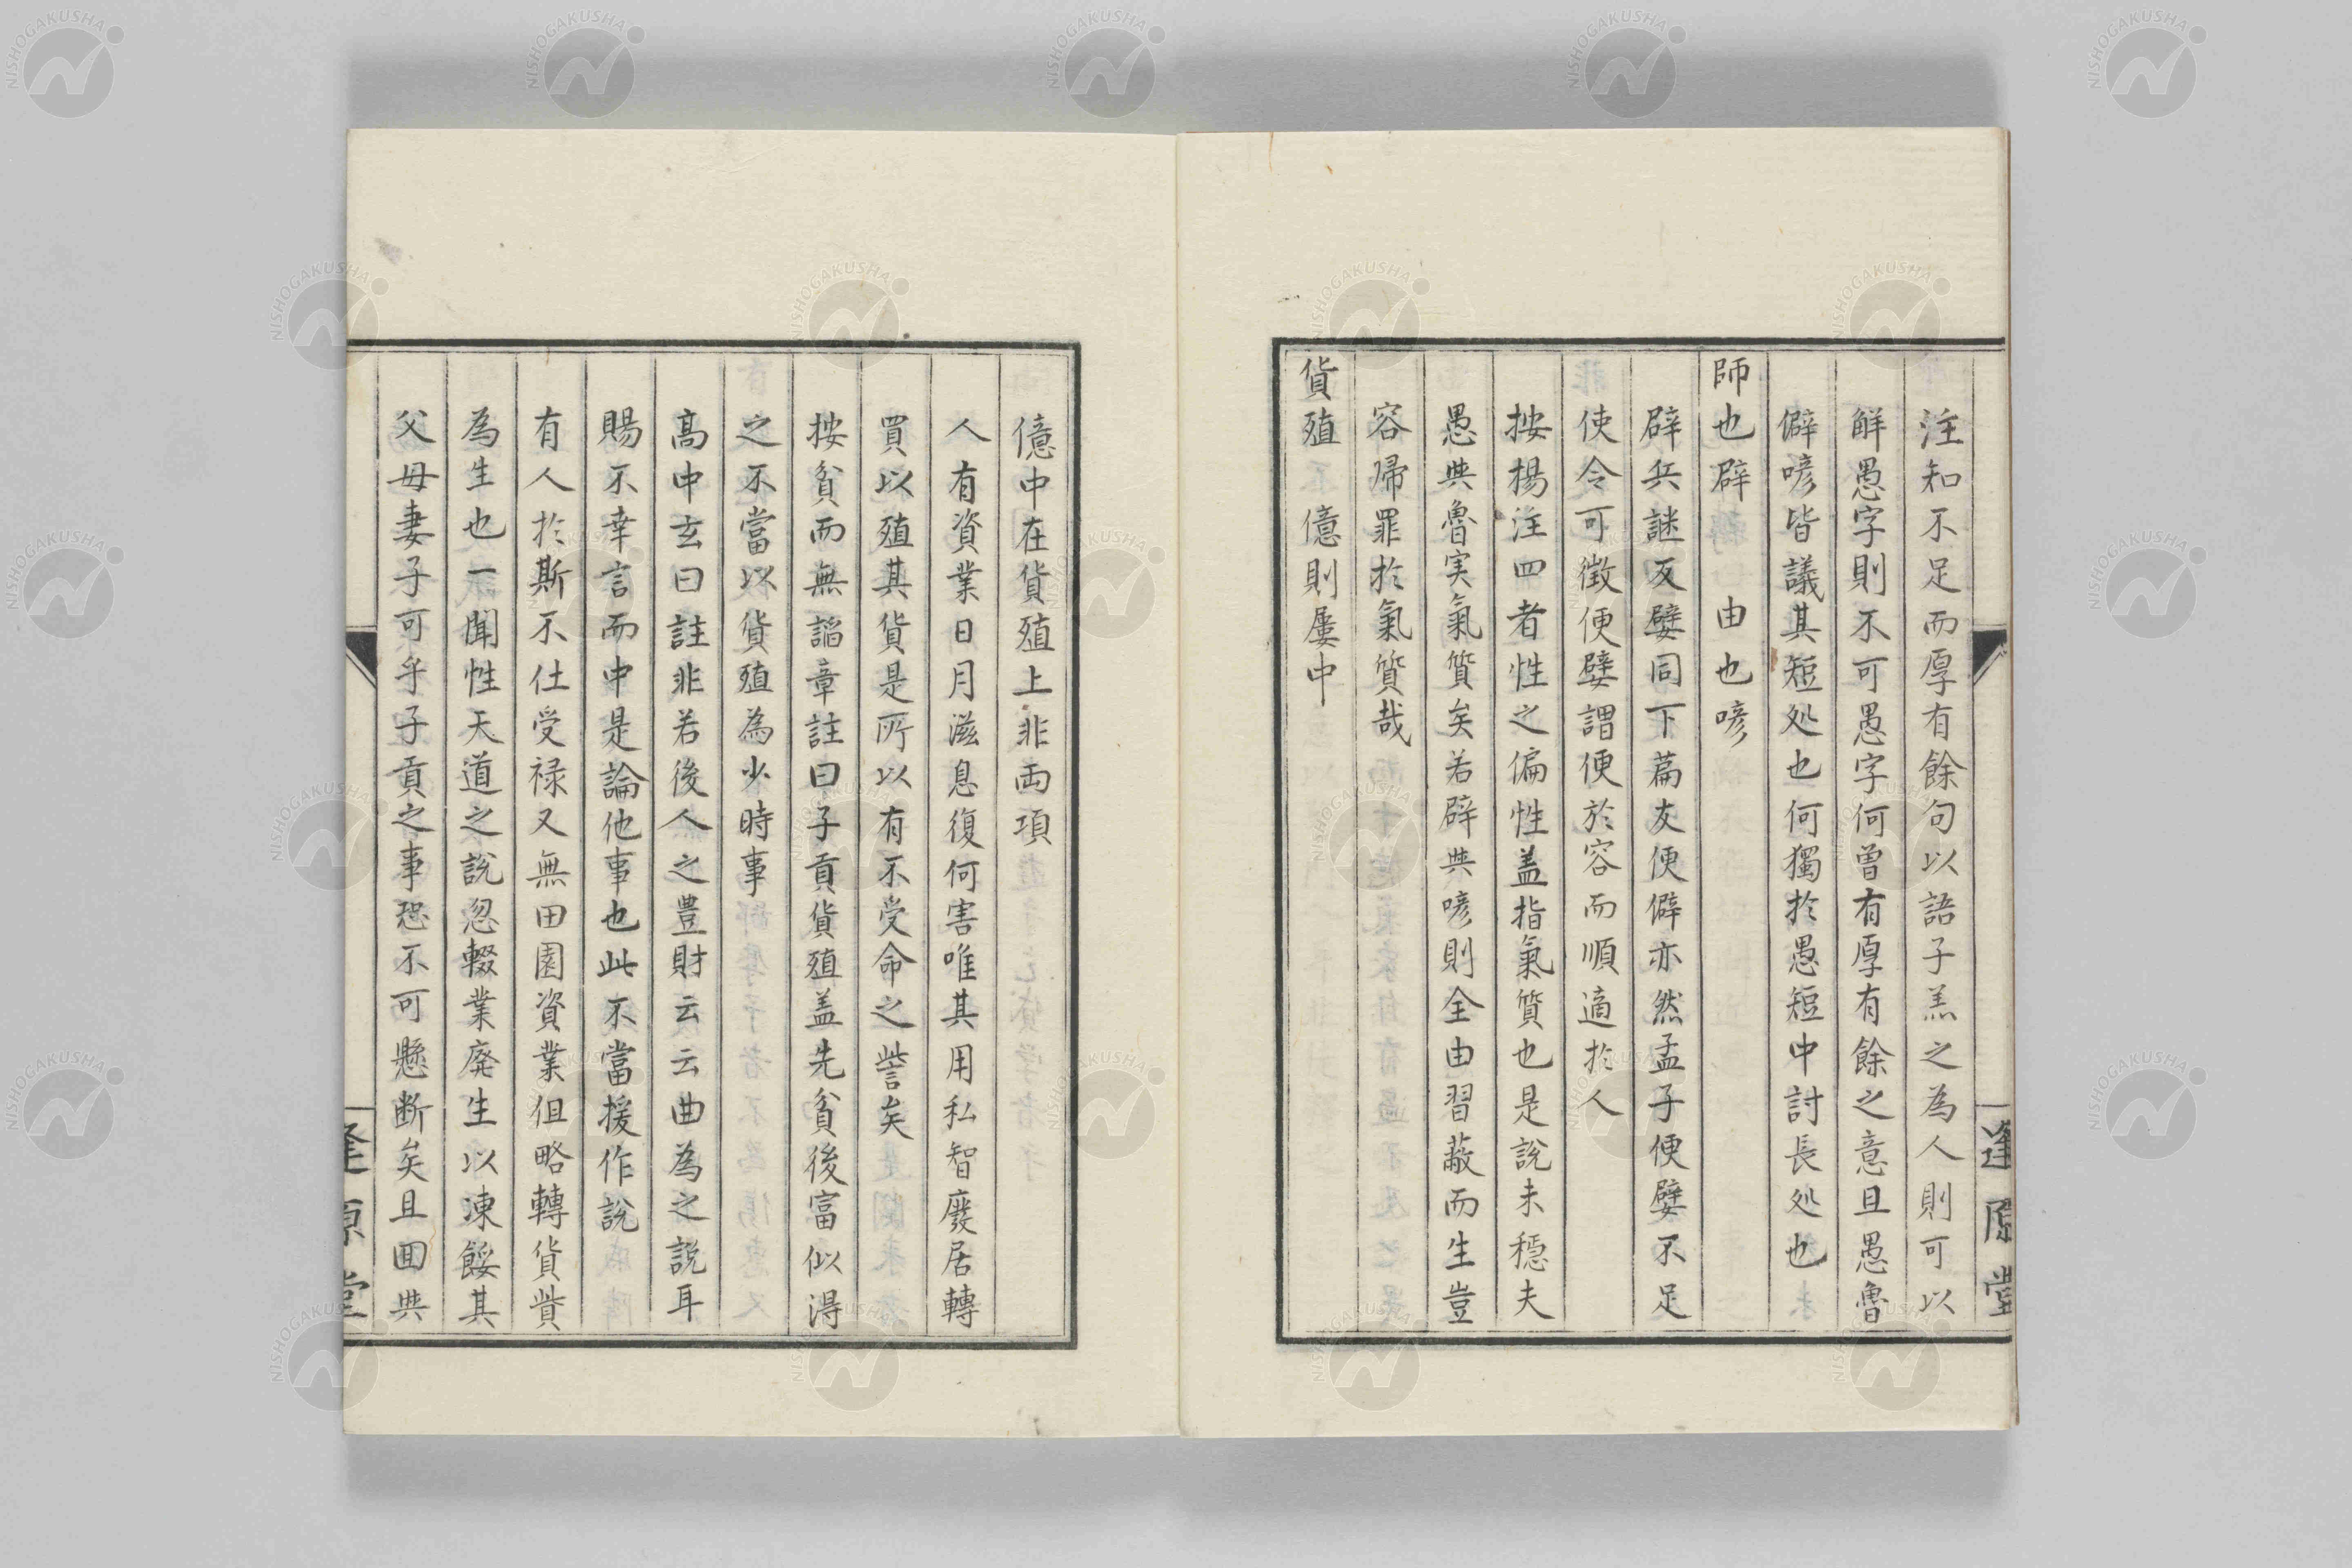 注知不足而厚有餘句以語子羔之為人則可以
觧愚字則不可愚字何曾有厚有餘之意且愚魯
僻喭皆議其短処也何獨於愚短中討長処也
師也辟　由也喭
辟兵謎反嬖同下篇友便僻亦然孟子便嬖不足
使令可徴便嬖謂便於容而順適於人
按楊注四者性之偏性盖指氣質也是說未穏夫
愚與魯実氣質矣若辟與喭則全由習蔽而生豈
容帰罪於氣質哉
貨殖　億則屢中
逢原堂
億中在貨殖上非両項
人有資業日月滋息復何害唯其用私智廢居轉
買以殖其貨是所以有不受命之訾矣
按貧而無諂章註曰子貢貨殖盖先貧後富似淂
之不當以貨殖為少時事
高中玄曰註非若後人之豊財云云曲為之說耳
賜不幸言而中是論他事也此不當援作說
有人於斯不仕受禄又無田園資業但略轉貨貲
為生也一聞性天道之說忽輟業廃生以凍餒其
父母妻子可乎子貢之事恐不可懸断矣且囬與
逢原堂